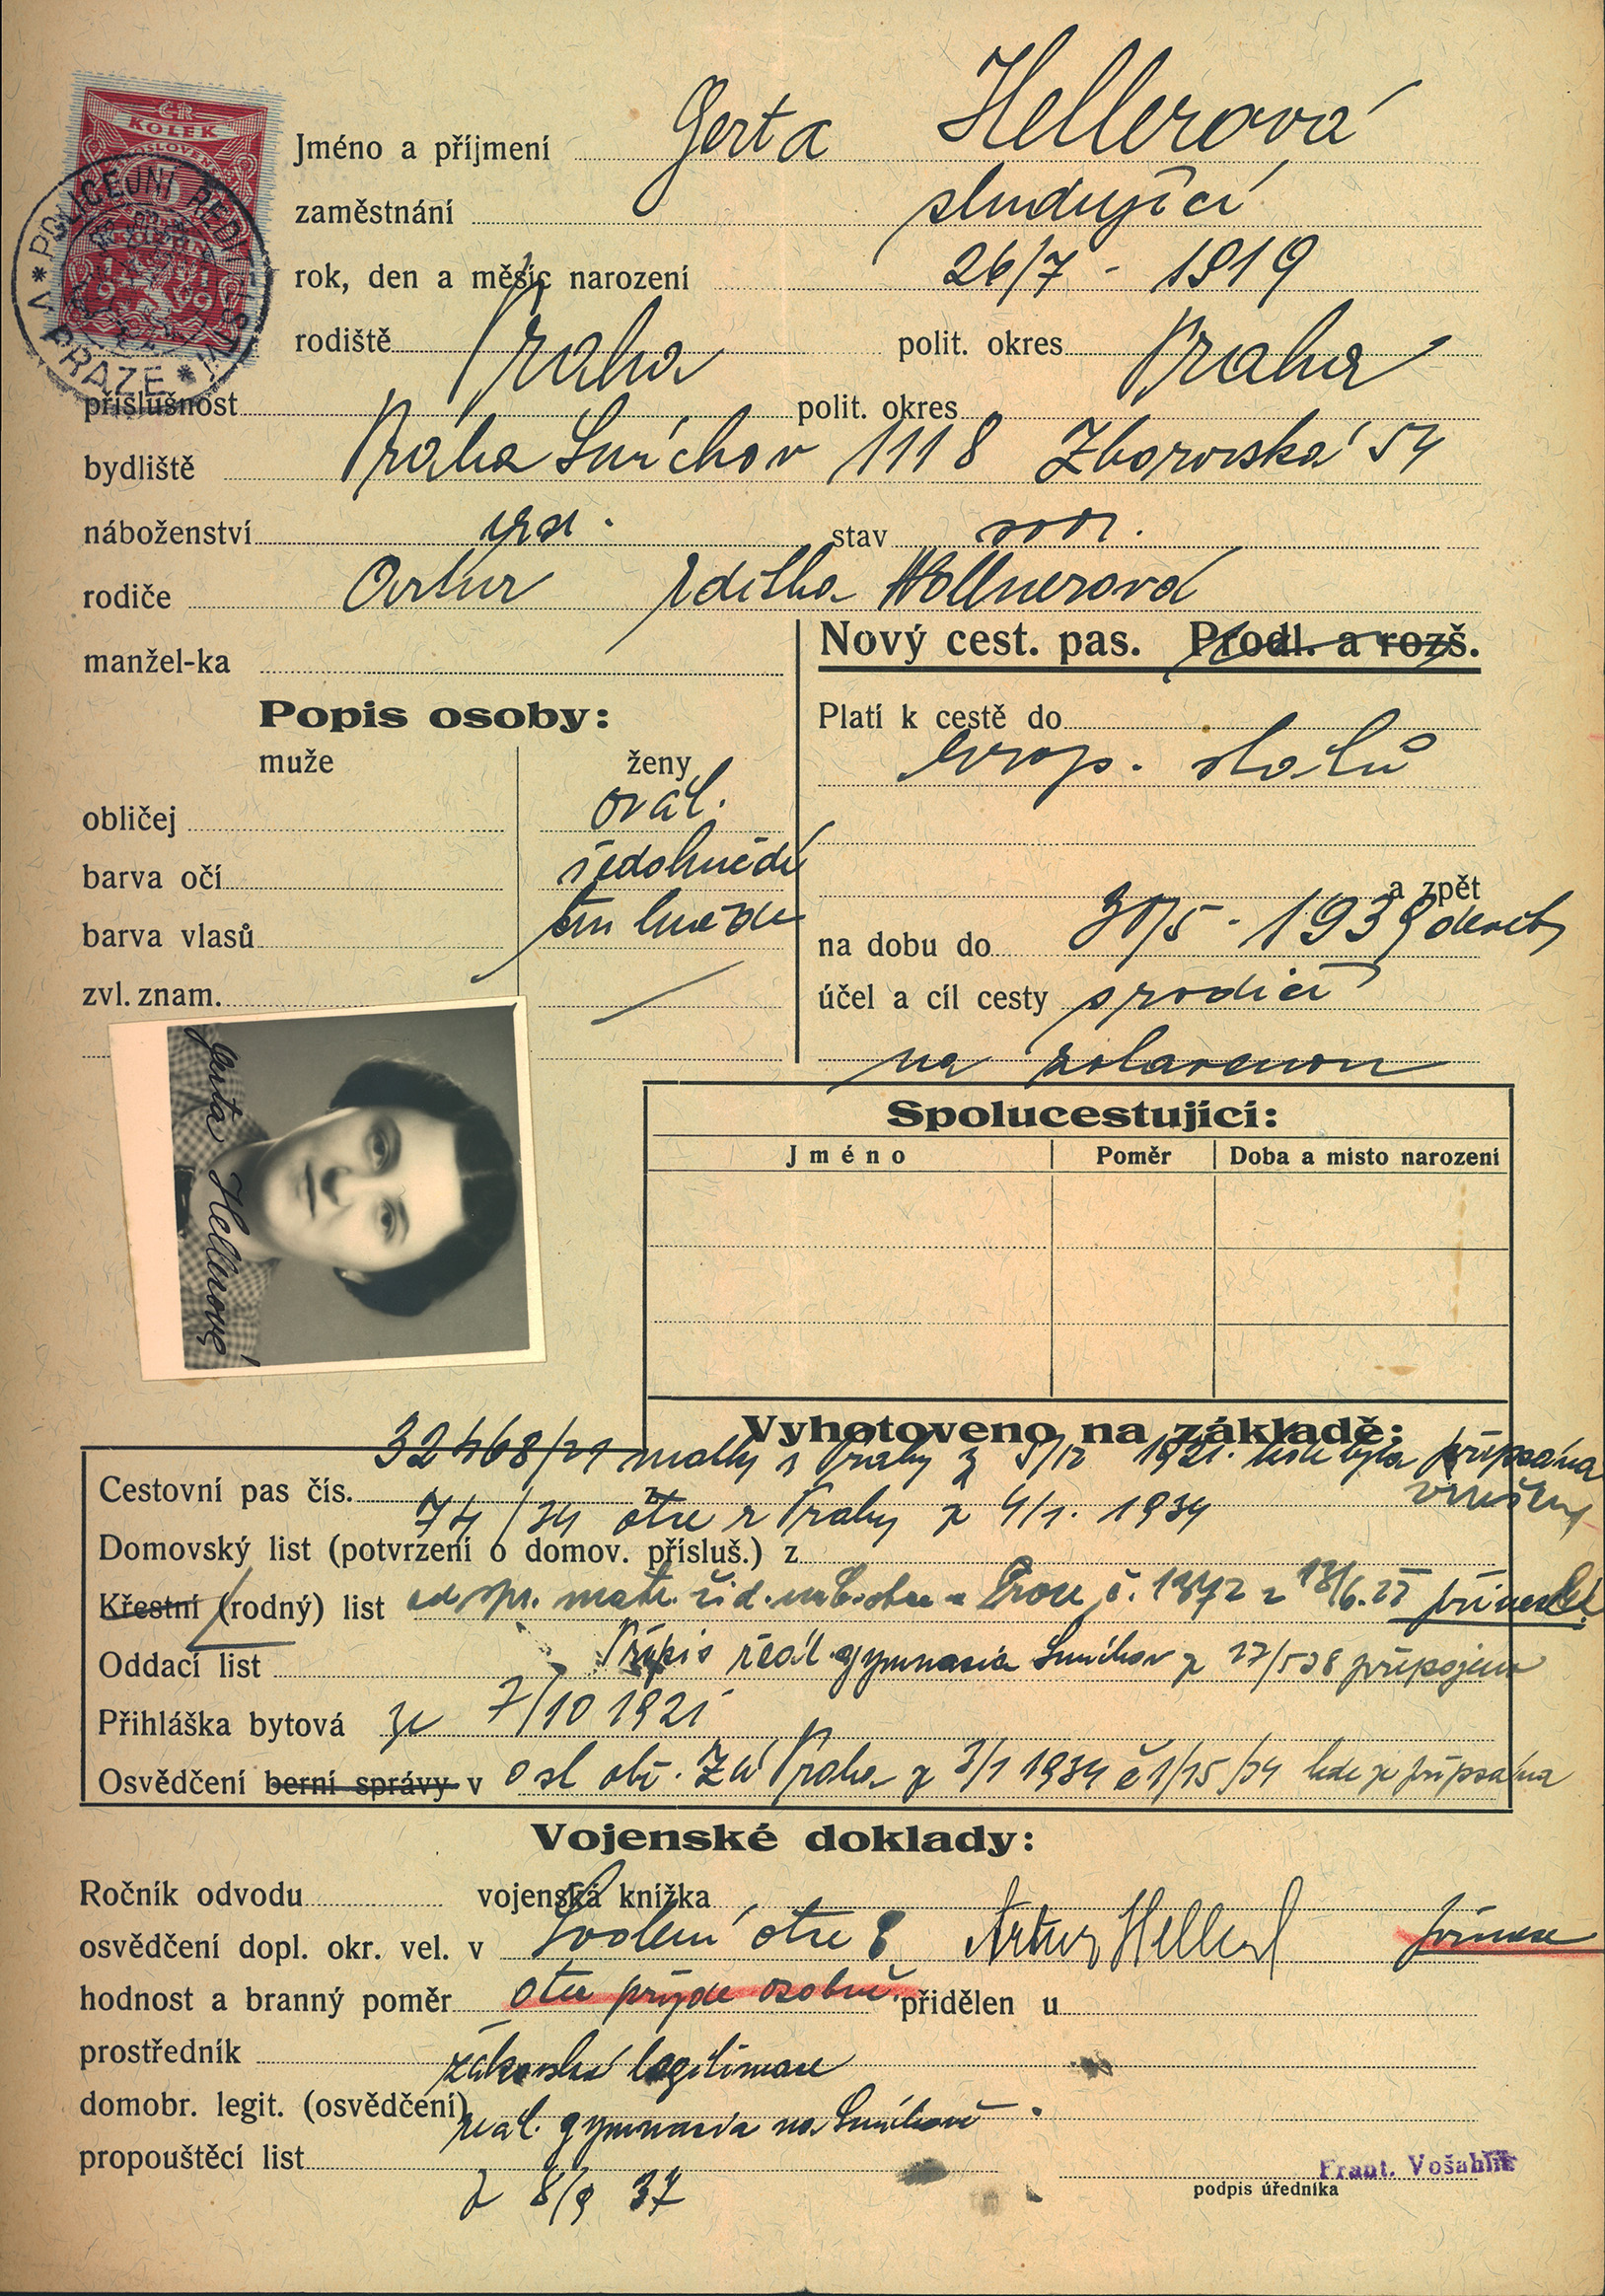 ČR
KOLEK
POLICEJNÍ ŘEDITELSTVÍ V PRAZE
Jméno a příjmení Gerta Hellerová
zaměstnání studující
rok, den a měsíc narození 26/7 - 1919
rodiště Praha polit. okres Praha
příslušnost polit. okres
bydliště Praha Smíchov 1118 Zborovská 54
náboženství stav svob.
rodiče Artur Editha Wollnerová
manžel-ka
Nový cest. pas. Prodl. a rozš.
Popis osoby:
muže ženy
obličej ovál.
barva očí šedohnědé
barva vlasů tm hnědé
zvl. znam.
Platí k cestě do
evrop. států
a zpět
na dobu do 30/5 - 1939
účel a cíl cesty s rodiči
na zotavenou
Gerta Hellerová
Spolucestující:
Jméno Poměr Doba a misto narození
Vyhotoveno na základě:
32468/21 matky z Prahy z 5/12 1921. kde byla připsána
Cestovní pas čís.
74/34 otce z Prahy z 4/1. 1934
Domovský list (potvrzení o domov. přísluš.) z
Křestní (rodný) list od spr. matr. žid. nab. obce v Praze č. 1372 z 13/6.
Oddací list Přípis reál. gymnasia Smíchov z 27/538 připojeno
Přihláška bytová ze 7/10 1921
Osvědčení berní správy v osl obv. Zú Praha z 3/1 1934 č 1/15/34 kde je připsána
Vojenské doklady:
Ročník odvodu vojenská knížka
osvědčení dopl. okr. vel. v Svolení otce Artur Heller přinese
hodnost a branný poměr otec přijde osobně přidělen u
prostředník
žákovská legitimace
domobr. legit. (osvědčení)
reál. gymnasia na Smíchově
propouštěcí list
z 8/9 37
Frant. Vošahlík
podpis úředníka